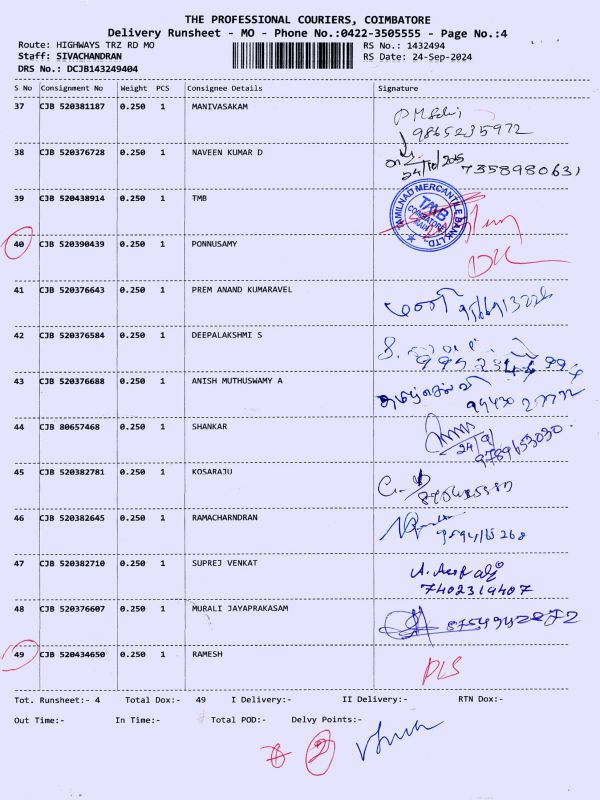 THE PROFESSIONAL COURIERS, COIMBATORE
Delivery Runsheet - MO - Phone No.:0422-3505555 - Page No.:4
Route: HIGHWAYS TRZ RD MO RS No.: 1432494
Staff: SIVACHANDRAN RS Date: 24-Sep-2024
DRS No.: DCJB143249404
S No Consignment No Weight PCS Consignee Details Signature
37 CJB 520381187 0.250 1 MANIVASAKAM
9865235972
38 CJB 520376728 0.250 1 NAVEEN KUMAR D
7358980631
39 CJB 520438914 0.250 1 TMB
TAMILNAD MERCANTILE BANK LTD.
TMB
COIMBATORE
MAIN
40 CJB 520390439 0.250 1 PONNUSAMY
DL
41 CJB 520376643 0.250 1 PREM ANAND KUMARAVEL
42 CJB 520376584 0.250 1 DEEPALAKSHMI S
43 CJB 520376688 0.250 1 ANISH MUTHUSWAMY A
44 CJB 80657468 0.250 1 SHANKAR
24/9
9789653090
45 CJB 520382781 0.250 1 KOSARAJU
46 CJB 520382645 0.250 1 RAMACHARNDRAN
47 CJB 520382710 0.250 1 SUPREJ VENKAT
7402319407
48 CJB 520376607 0.250 1 MURALI JAYAPRAKASAM
8754942872
49 CJB 520434650 0.250 1 RAMESH
DLS
Tot. Runsheet:- 4 Total Dox:- 49 I Delivery:- II Delivery:- RTN Dox:-
Out Time:- In Time:- Total POD:- Delvy Points:-
2